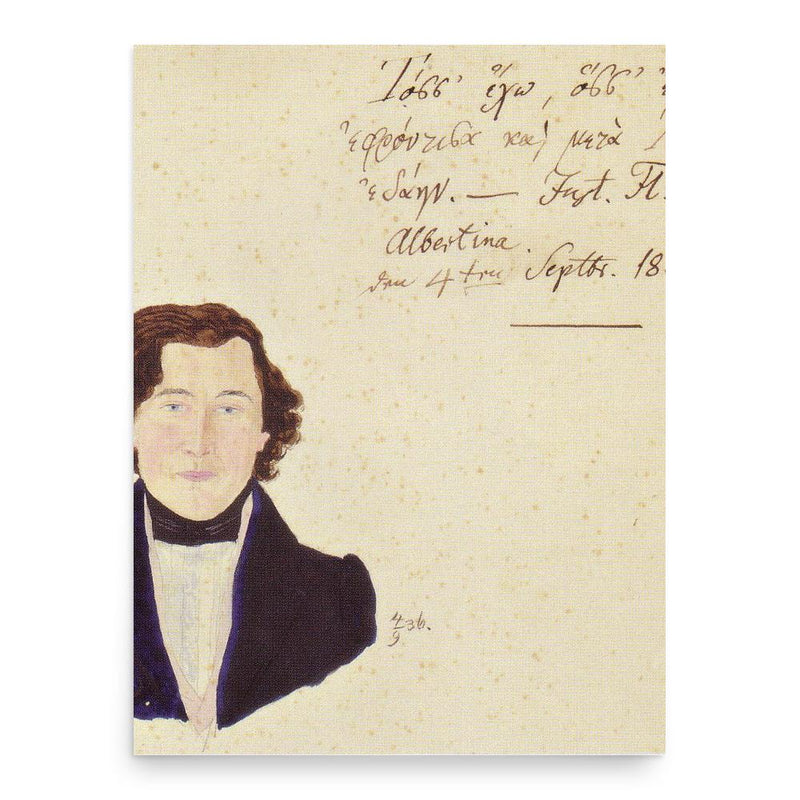 Τόσσ' ἔχω, ὅσσ'
ἐφρόντισα καὶ μετὰ
ἐδάην. — Just.
Albertina.
den 4ten Septbr. 18
4/9 36.